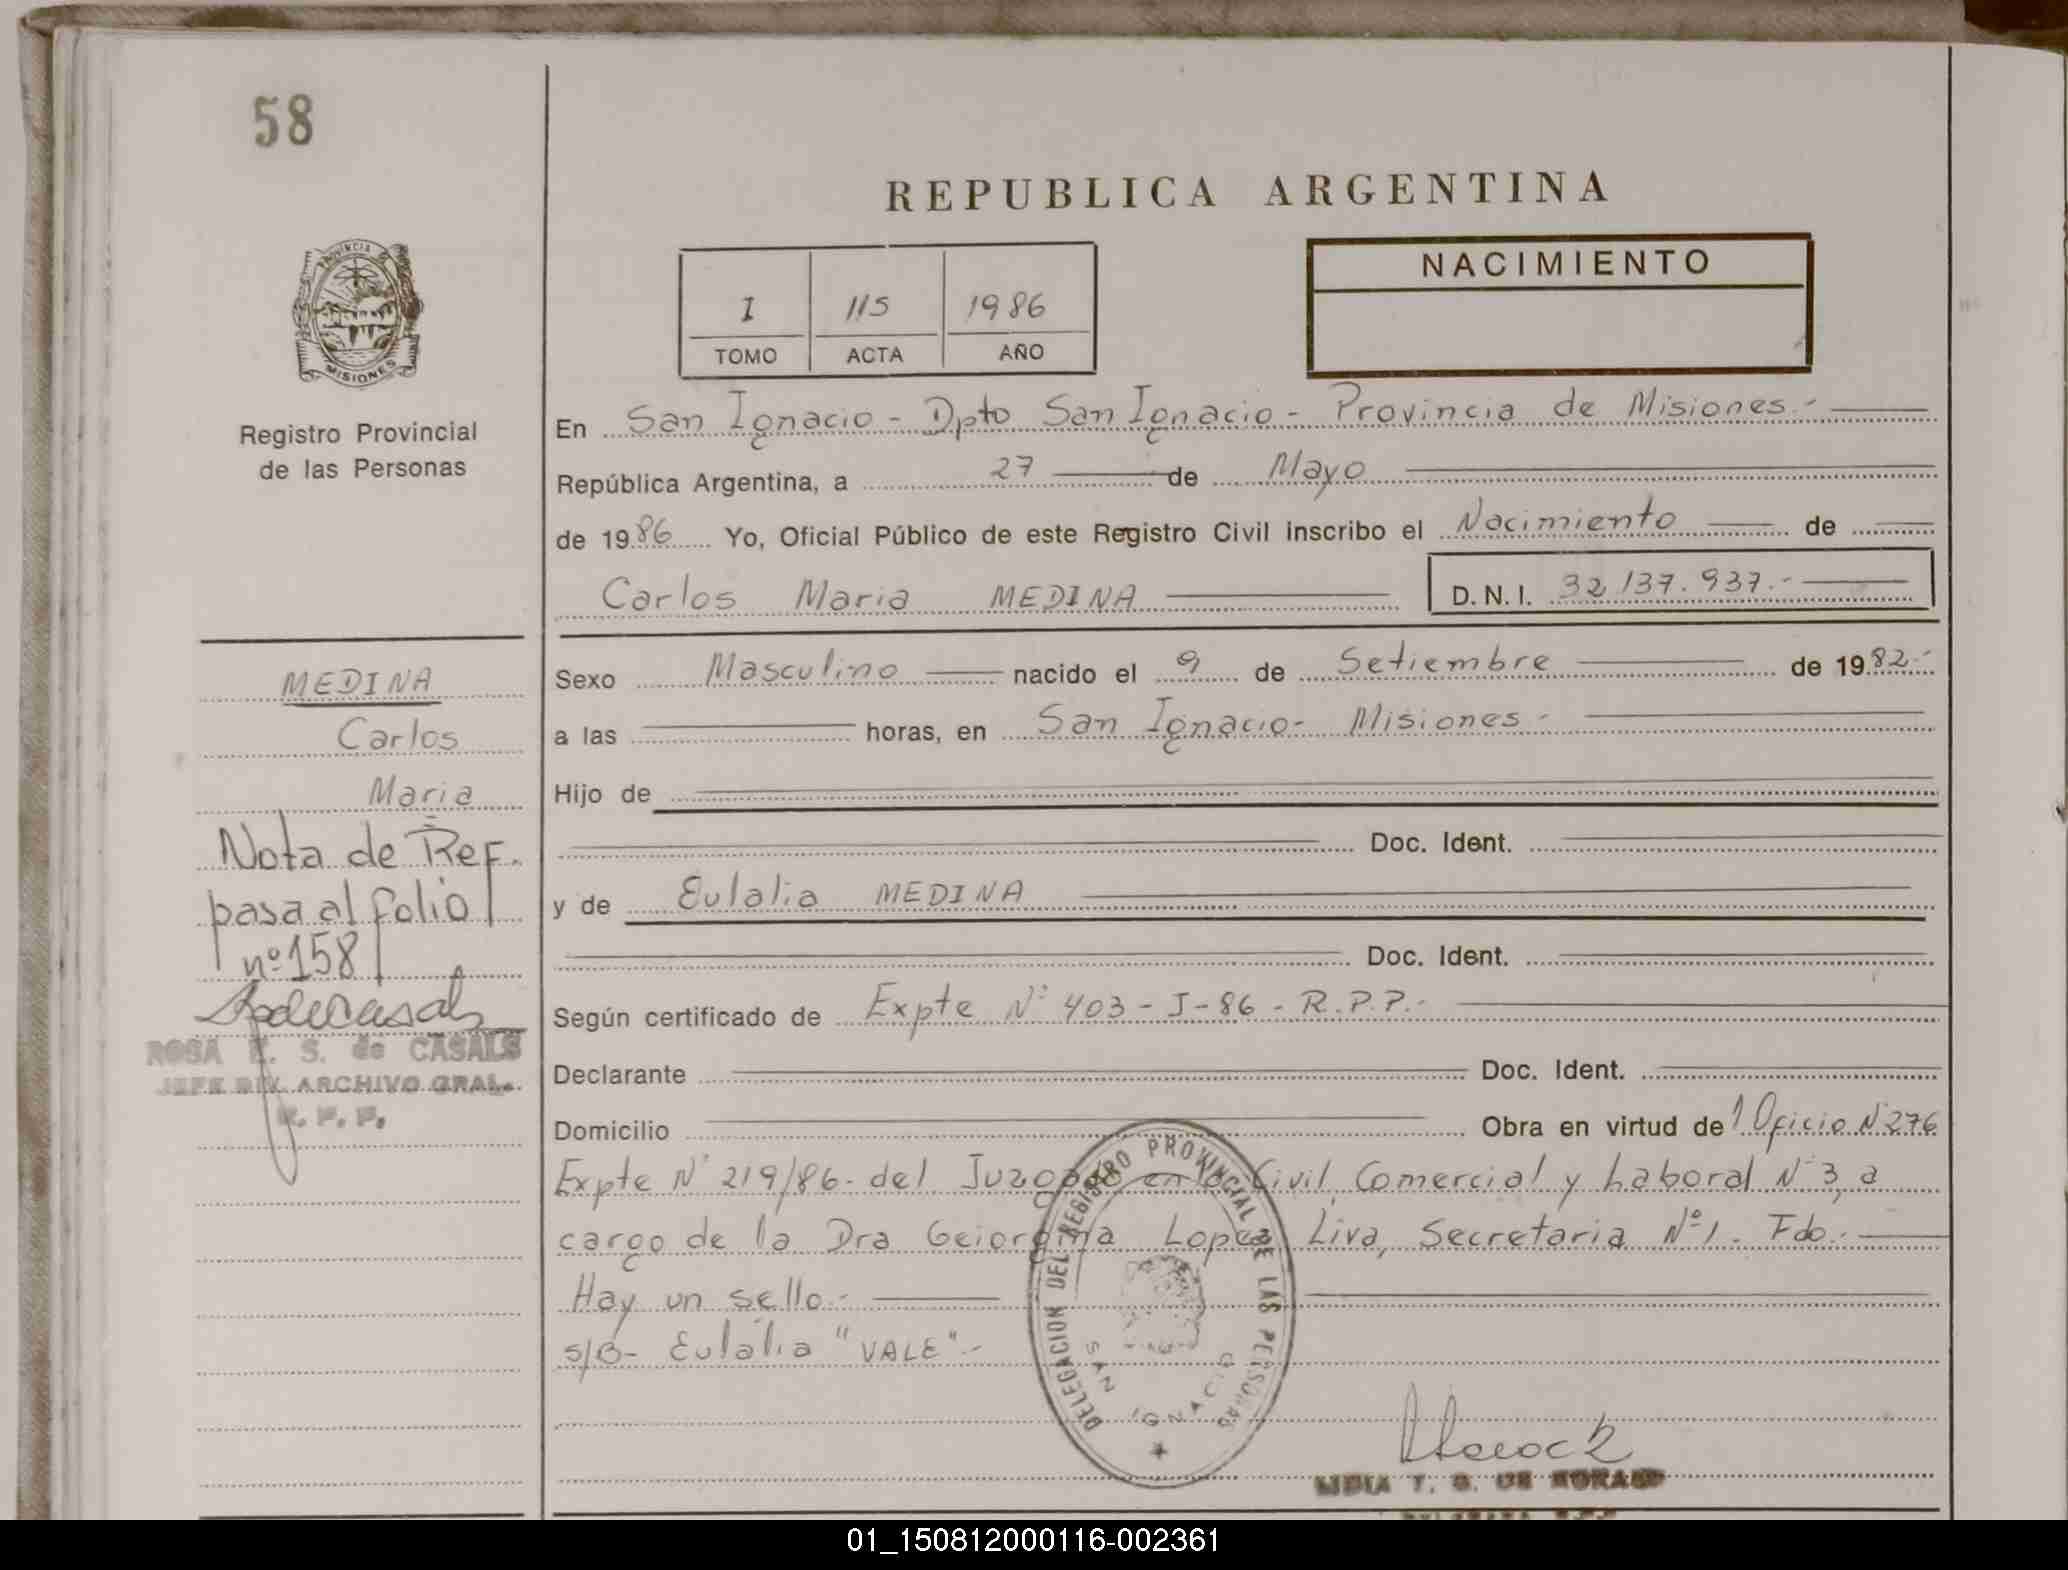 58
REPUBLICA ARGENTINA
PROVINCIA DE
MISIONES
Registro Provincial
de las Personas
I 115 1986
TOMO ACTA AÑO
NACIMIENTO
En San Ignacio - Dpto San Ignacio - Provincia de Misiones.-
República Argentina, a 27 de Mayo
de 1986 Yo, Oficial Público de este Registro Civil inscribo el Nacimiento de
Carlos Maria MEDINA D.N.I. 32.137.937.-
MEDINA
Carlos
Maria
Nota de Ref.
pasa al folio
nº 158
ROSA E. S. de CASALS
JEFE DIV. ARCHIVO GRAL.
R. P. P.
Sexo Masculino nacido el 9 de Setiembre de 1982.-
a las horas, en San Ignacio- Misiones-
Hijo de
Doc. Ident.
y de Eulalia MEDINA
Doc. Ident.
Según certificado de Expte Nº 403-J-86-R.P.P.-
Declarante Doc. Ident.
Domicilio Obra en virtud de 1 Oficio Nº 276
Expte Nº 219/86- del Juzgado en lo Civil, Comercial y Laboral Nº 3, a
cargo de la Dra Geiorgina Lopez Liva, Secretaria Nº 1. Fdo.-
Hay un sello.-
s/B- Eulalia "VALE".-
DELEGACION DEL REGISTRO PROVINCIAL DE LAS PERSONAS
SAN IGNACIO
LIDIA T. G. DE
01_150812000116-002361